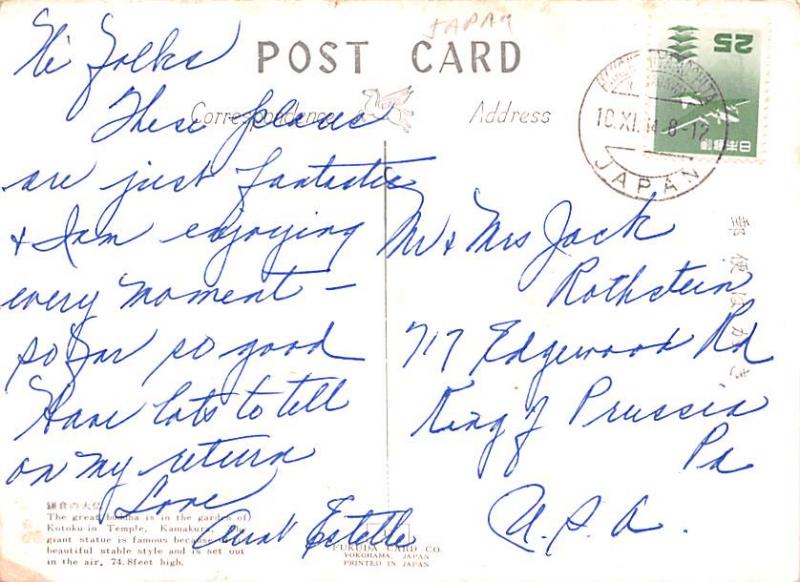 JAPAN
POST CARD
Correspondence
Address
Hi Folks
These places
are just fantastic
& I am enjoying
every moment -
so far so good
Have lots to tell
on my return
Love
Aunt Estelle
Mr & Mrs Jack
Rothstein
717 Edgewood Rd
King of Prussia
Pa
U.S.A.
25
日本郵便
10.XI. 8-12
JAPAN
郵便はがき
鎌倉の大仏
The great budha is in the garden of
Kotoku-in Temple, Kamakura.
giant statue is famous because
beautiful stable style and is set out
in the air, 74.8feet high.
FUKUDA CARD CO.
YOKOHAMA, JAPAN
PRINTED IN JAPAN